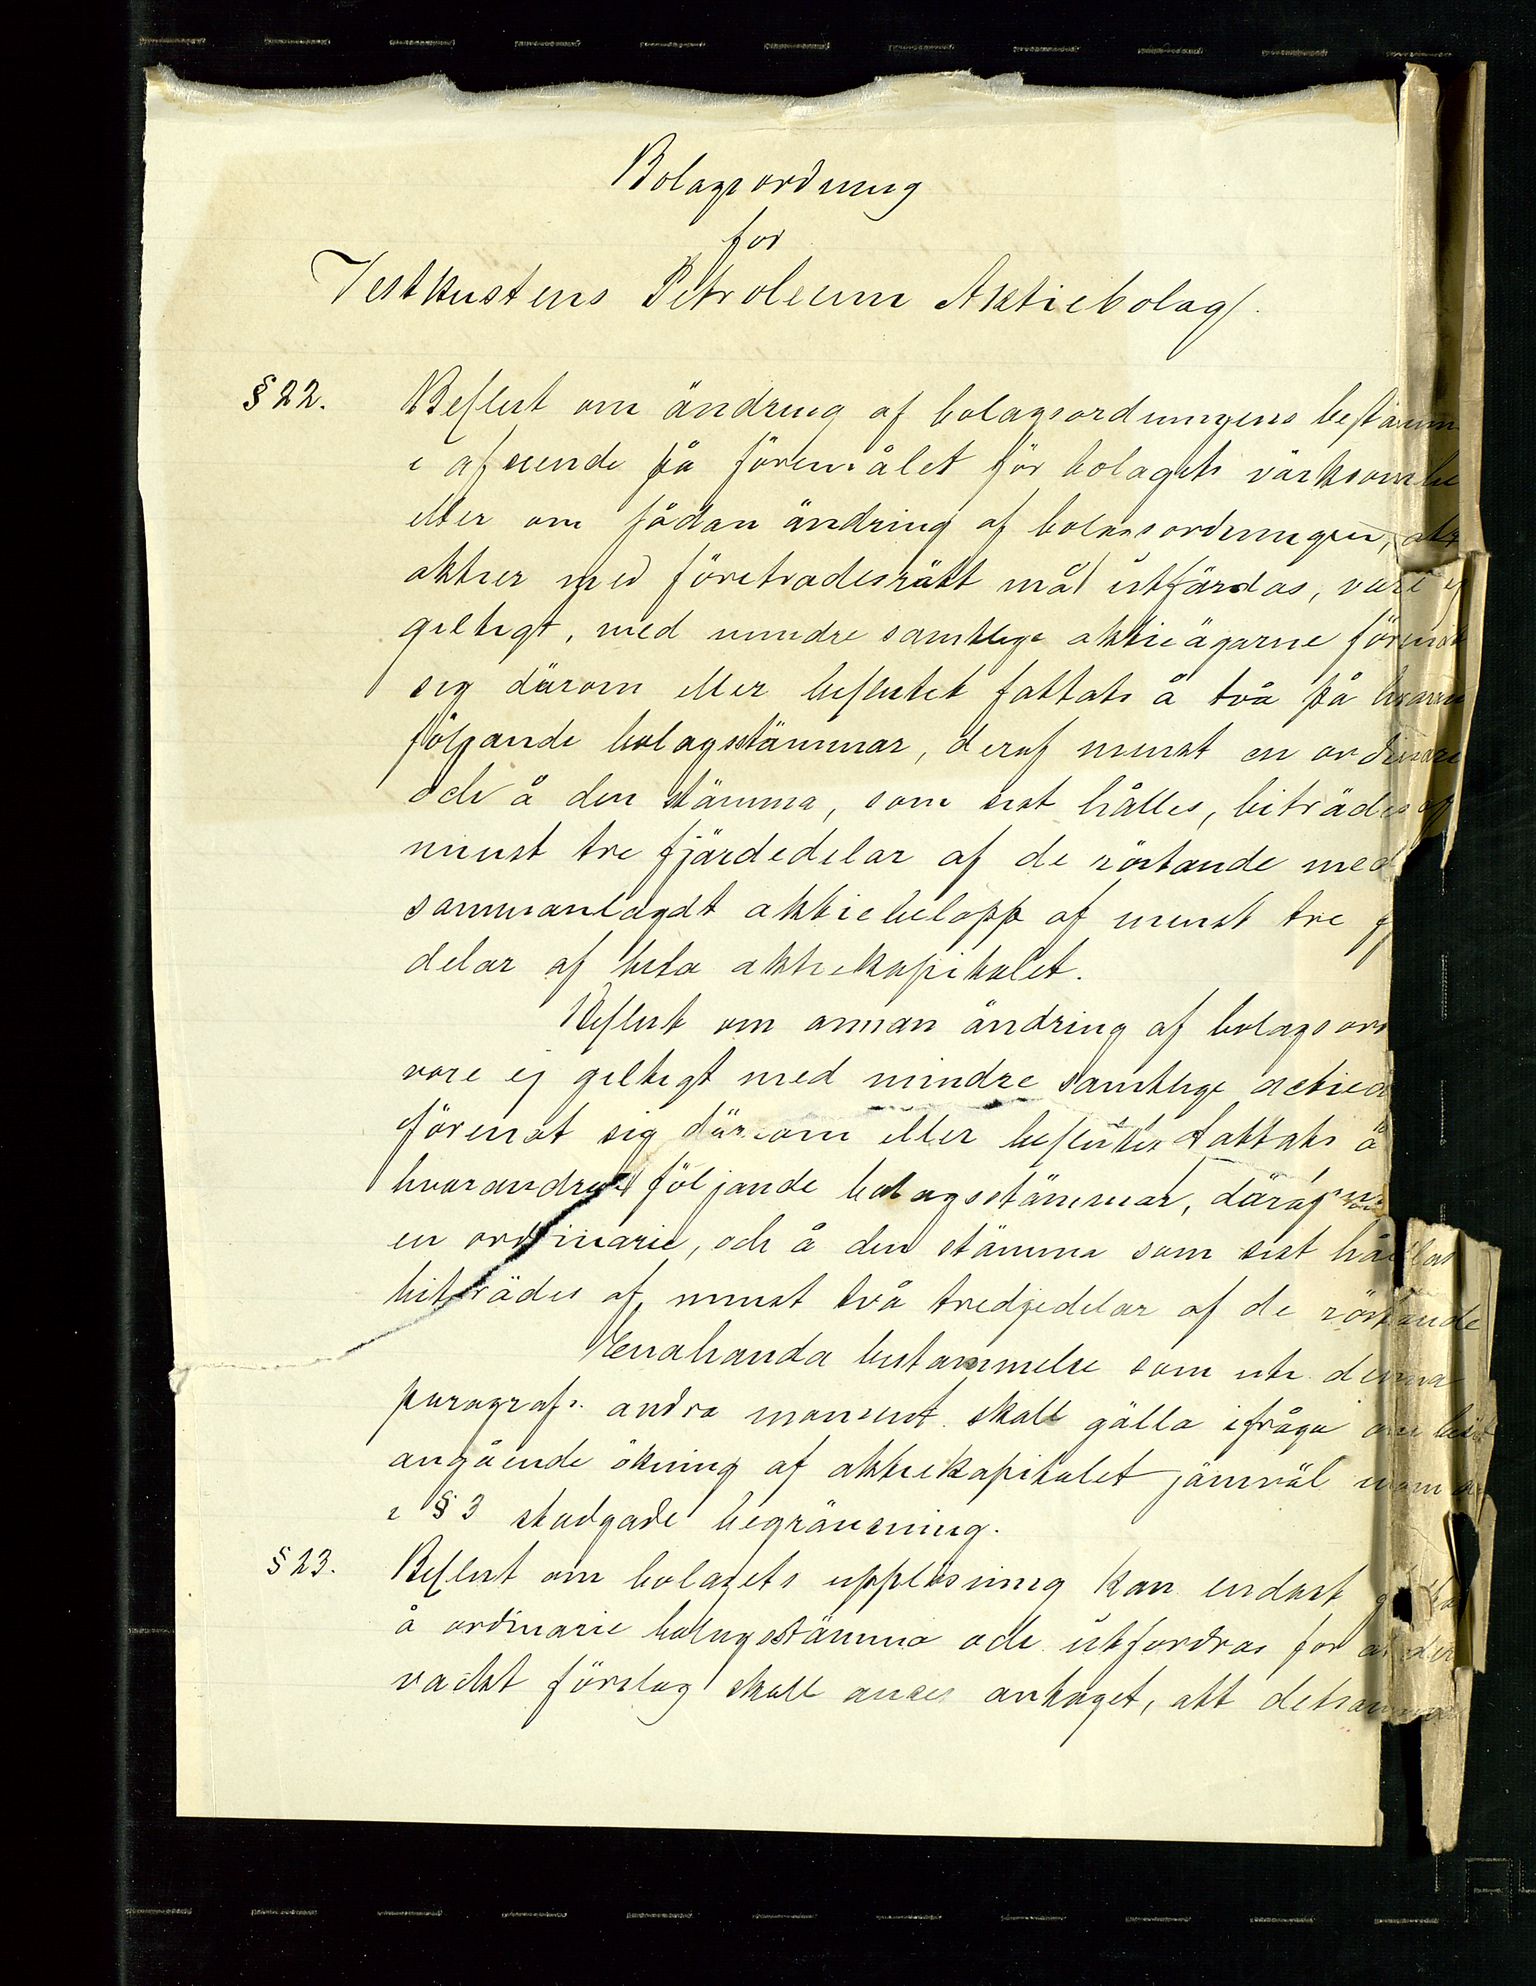 Bolagsordning
för
Vestkustens Petroleum Aktiebolag.
§ 22. Beslut om ändring af bolagsordningens bestämm
i afseende på föremålet för bolagets värksamhe
eller om sådan ändring af bolagsordningen, att
aktier med företrädesrätt må utfärdas, vare ej
giltigt, med mindre samtlige aktieägarne förenat
sig därom eller beslutet fattats å två på hvaran
följande bolagsstämmar, deraf minst en ordinarie
och å den stämma, som sist hålles, biträdes af
minst tre fjärdedelar af de röstande med
sammanlagdt aktiebelopp af minst tre fj
delar af hela aktiekapitalet.
Beslut om annan ändring af bolagsord
vare ej giltigt med mindre samtlige actieä
förenat sig därom eller beslutet fattats å
hvarandra följande bolagsstämmar, däraf
en ordinarie, och å den stämma som sist hållas
biträdes af minst två tredjedelar af de röstande
Enahanda bestämmelse som uti denna
paragrafs andra moment skall gälla ifråga om besl
angående ökning af aktiekapitalet jämväl inom
i § 3 stadgade begränsning.
§ 23. Beslut om bolagets upplösning kan endast
å ordinarie bolagsstämma och utfordras för att der
väckt förslag skall anses antaget, att detsamma